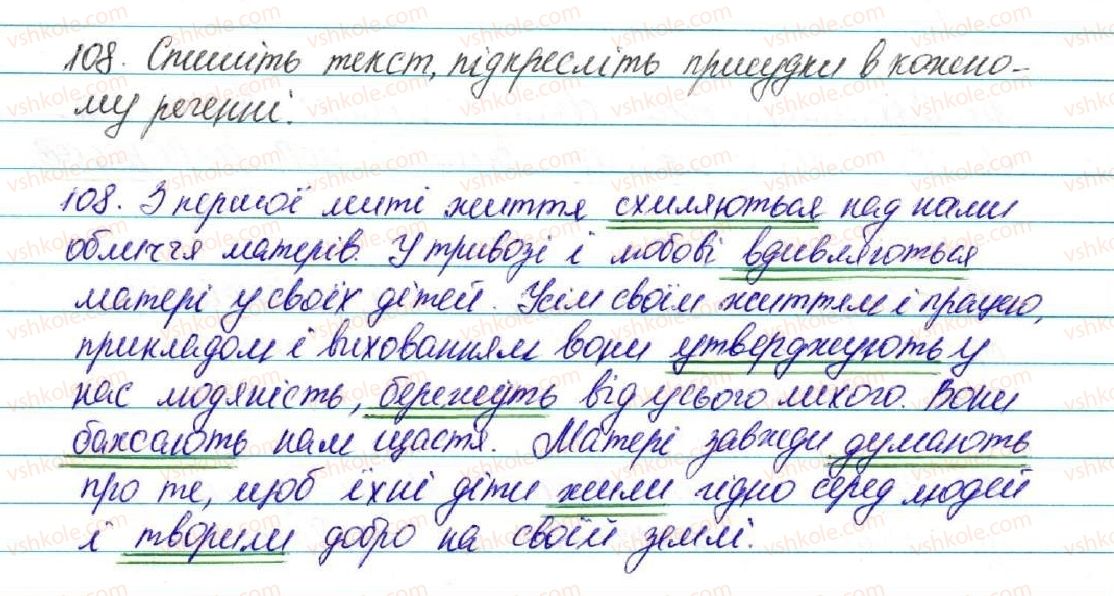 108. Спишіть текст, підкресліть присудки в кожно-
му реченні.
108. З першої миті життя схиляються над нами
обличчя матерів. У тривозі і любові вдивляються
матері у своїх дітей. Усім своїм життям і працею,
прикладом і вихованням вони утверджують у
нас людяність, бережуть від усього лихого. Вони
бажають нам щастя. Матері завжди думають
про те, щоб їхні діти жили гідно серед людей
і творили добро на своїй землі.